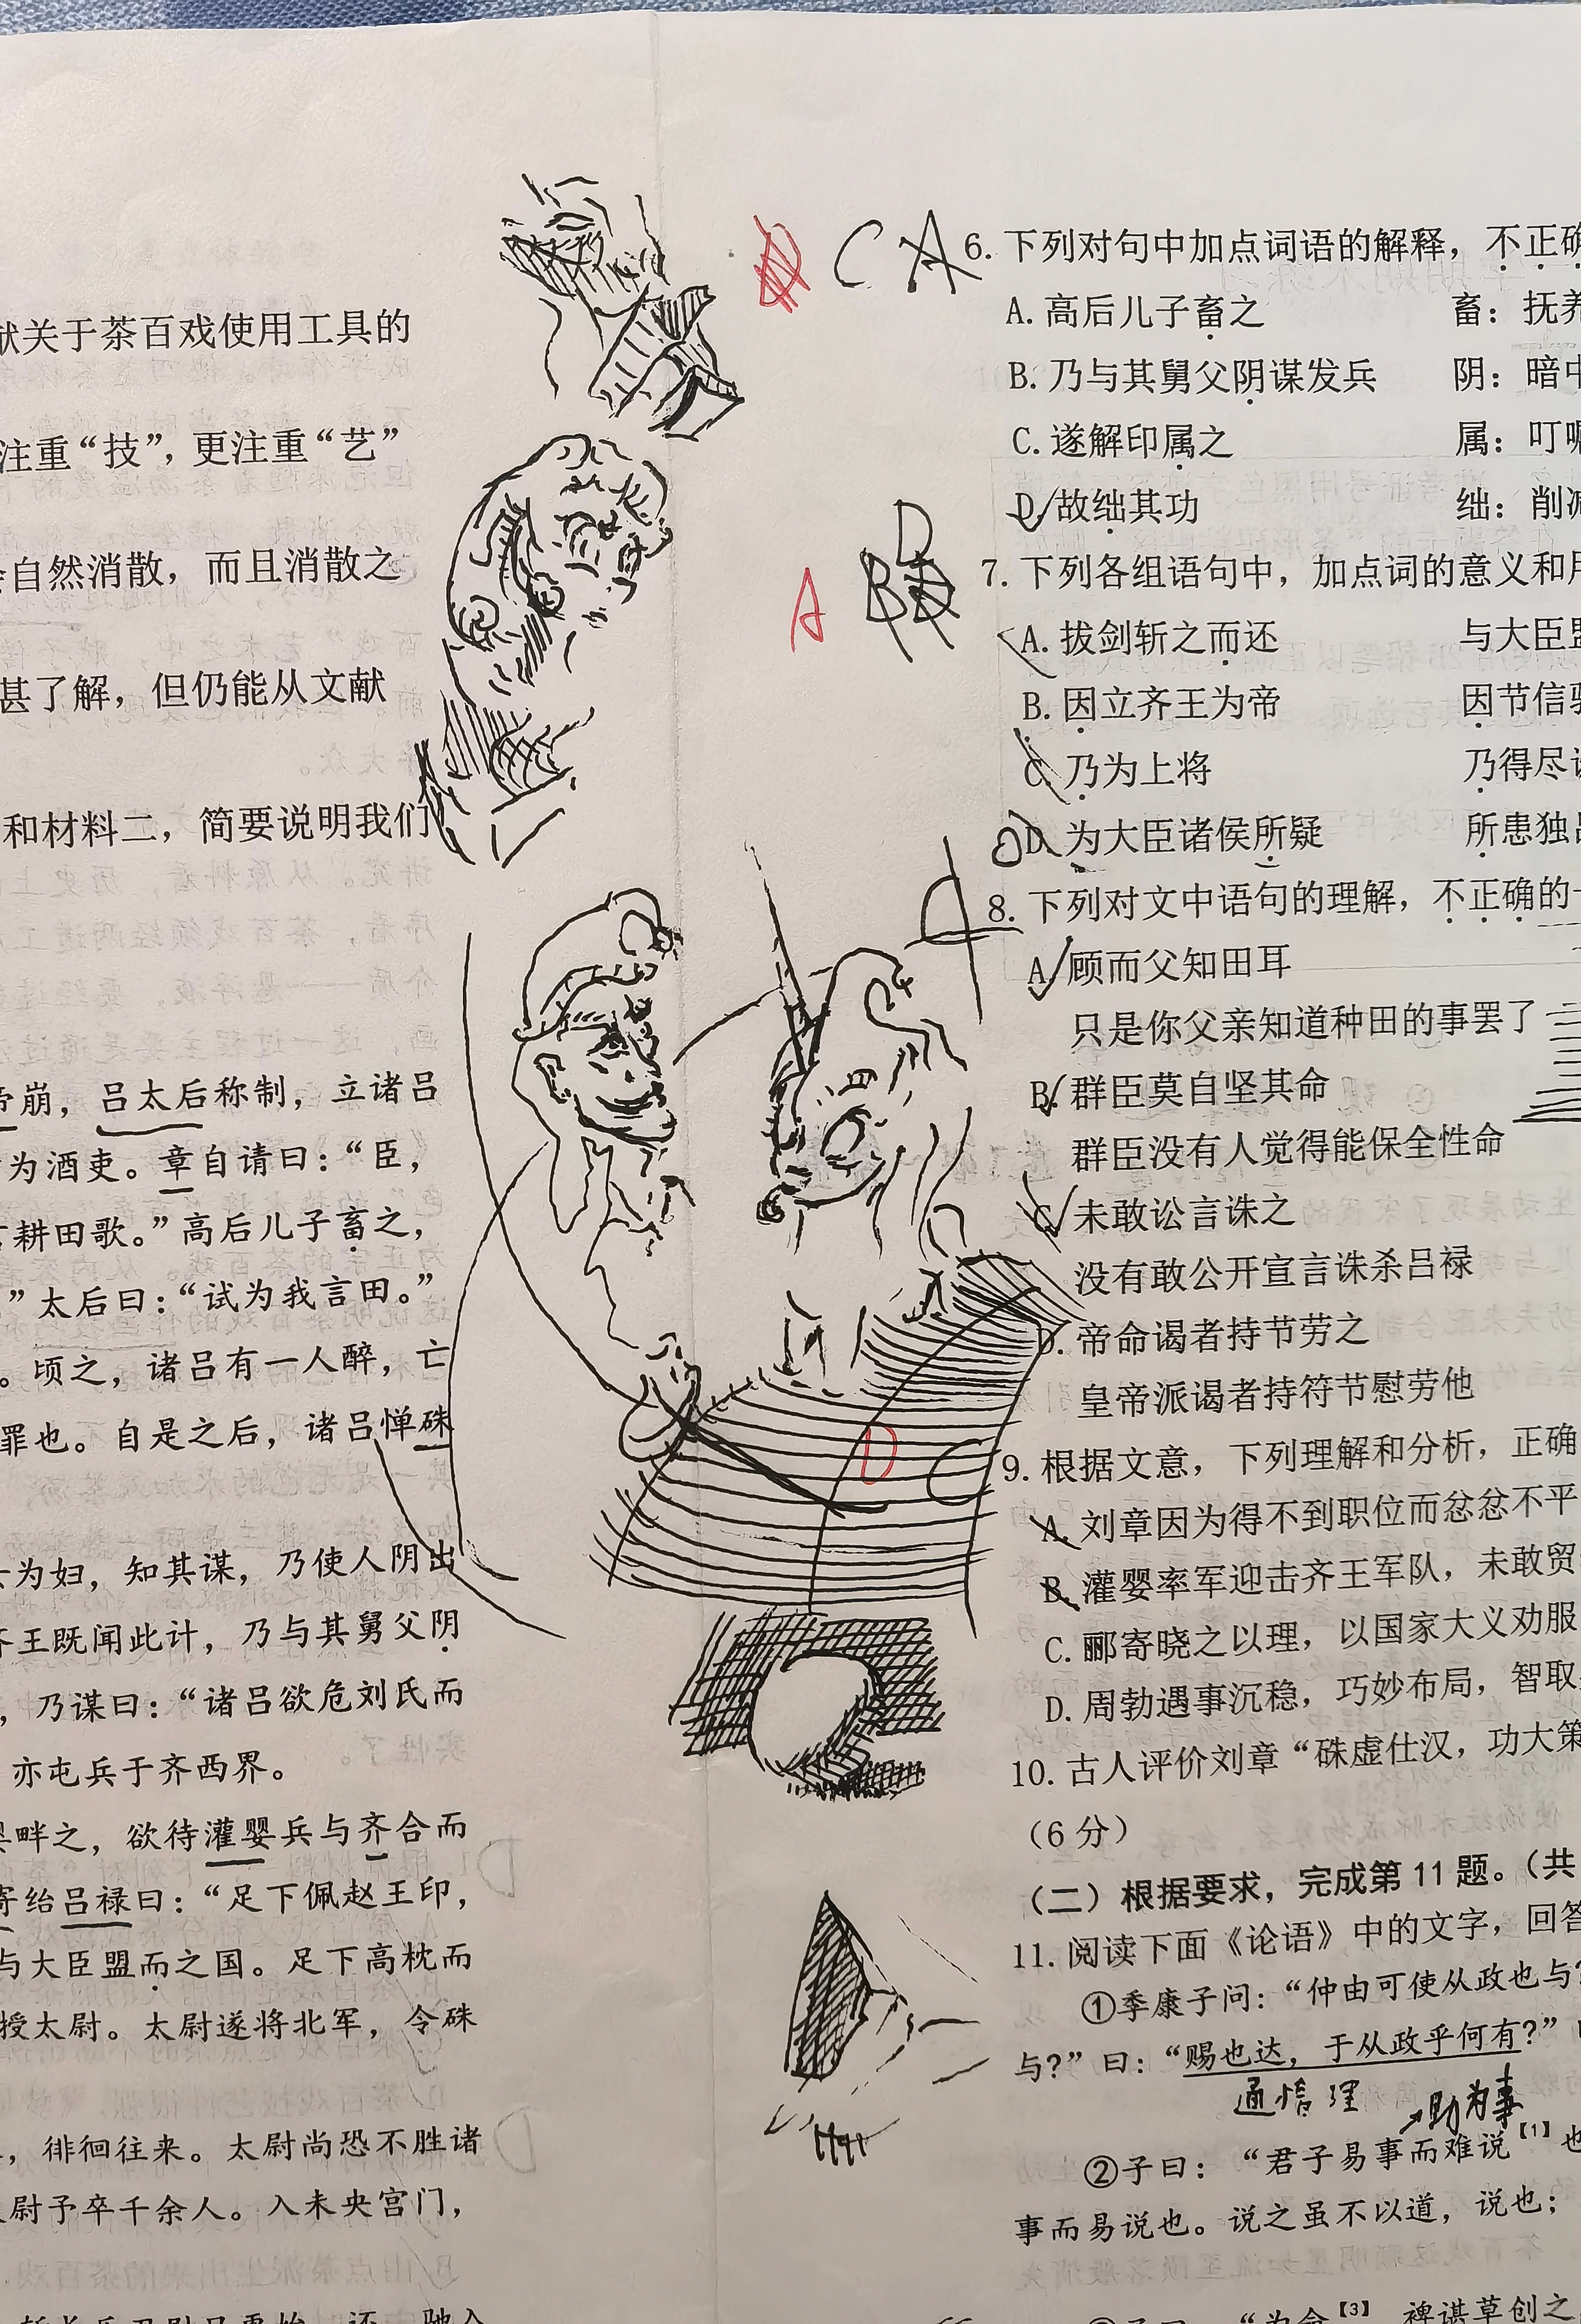 献关于茶百戏使用工具的
注重“技”，更注重“艺”
自然消散，而且消散之
甚了解，但仍能从文献
和材料二，简要说明我们
帝崩，吕太后称制，立诸吕
为酒吏。章自请曰：“臣，
耕田歌。”高后儿子畜之，
”太后曰：“试为我言田。”
。顷之，诸吕有一人醉，亡
罪也。自是之后，诸吕惮硃
为妇，知其谋，乃使人阴出
齐王既闻此计，乃与其舅父阴
，乃谋曰：“诸吕欲危刘氏而
亦屯兵于齐西界。
畔之，欲待灌婴兵与齐合而
寄绐吕禄曰：“足下佩赵王印，
与大臣盟而之国。足下高枕而
授太尉。太尉遂将北军，令硃
，徘徊往来。太尉尚恐不胜诸
尉予卒千余人。入未央宫门，
C A
6. 下列对句中加点词语的解释，不正确
A. 高后儿子畜之 畜：抚养
B. 乃与其舅父阴谋发兵 阴：暗中
C. 遂解印属之 属：叮嘱
D. 故绌其功 绌：削减
A B D
7. 下列各组语句中，加点词的意义和用
A. 拔剑斩之而还 与大臣盟
B. 因立齐王为帝 因节信驰
C. 乃为上将 乃得尽诛
D. 为大臣诸侯所疑 所患独吕
8. 下列对文中语句的理解，不正确的一
A. 顾而父知田耳
只是你父亲知道种田的事罢了
B. 群臣莫自坚其命
群臣没有人觉得能保全性命
C. 未敢讼言诛之
没有敢公开宣言诛杀吕禄
D. 帝命谒者持节劳之
皇帝派谒者持符节慰劳他
D C
9. 根据文意，下列理解和分析，正确
A. 刘章因为得不到职位而忿忿不平
B. 灌婴率军迎击齐王军队，未敢贸
C. 郦寄晓之以理，以国家大义劝服
D. 周勃遇事沉稳，巧妙布局，智取
10. 古人评价刘章“硃虚仕汉，功大策
（6 分）
（二）根据要求，完成第 11 题。（共
11. 阅读下面《论语》中的文字，回答
①季康子问：“仲由可使从政也与？
与？”曰：“赐也达，于从政乎何有？”
通情理
助为事
②子曰：“君子易事而难说【1】也
事而易说也。说之虽不以道，说也；
“为命【3】，裨谌草创之